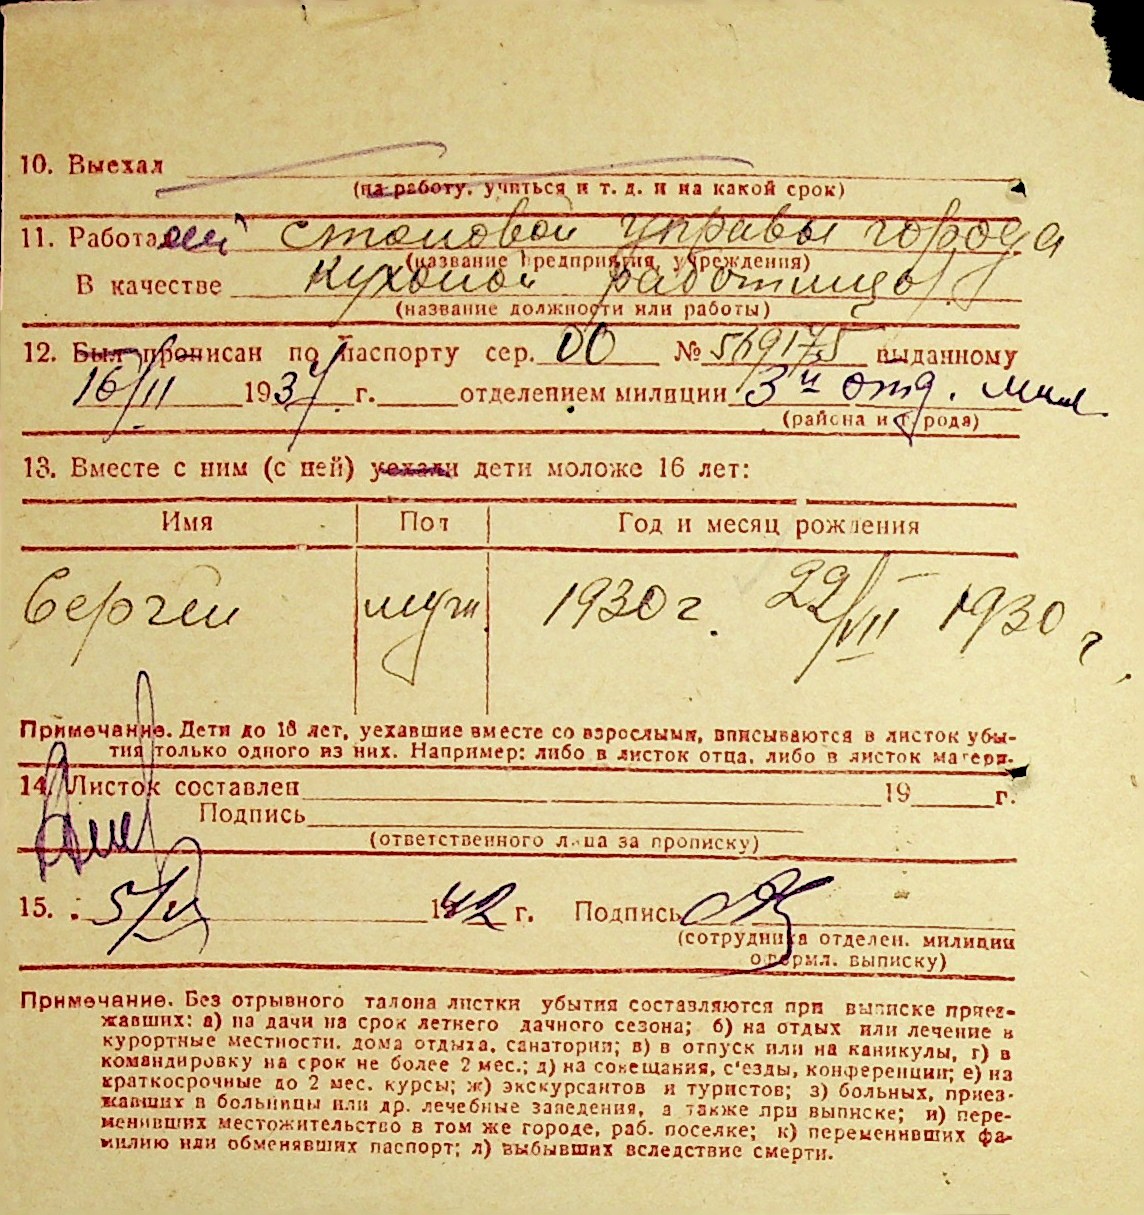 10. Выехал
(на работу, учиться и т. д. и на какой срок)
11. Работа столовой управы города
(название предприятия, учреждения)
В качестве кухоной работницы
(название должности или работы)
12. Был прописан по паспорту сер. ОО № 569175 выданному
16/II 1937 г. отделением милиции 3й отд. мил
(района и города)
13. Вместе с ним (с ней) уехали дети моложе 16 лет:
Имя Пол Год и месяц рождения
Сергей муж. 1930 г. 22/VII 1930 г.
Примечание. Дети до 16 лет, уехавшие вместе со взрослыми, вписываются в листок убы-
тия только одного из них. Например: либо в листок отца, либо в листок матери.
14. Листок составлен 19 г.
Подпись
(ответственного лица за прописку)
15. 5/VI 1942 г. Подпись
(сотрудника отделен. милиции
оформл. выписку)
Примечание. Без отрывного талона листки убытия составляются при выписке приез-
жавших: а) на дачи на срок летнего дачного сезона; б) на отдых или лечение в
курортные местности, дома отдыха, санатории; в) в отпуск или на каникулы, г) в
командировку на срок не более 2 мес.; д) на совещания, с'езды, конференции; е) на
краткосрочные до 2 мес. курсы; ж) экскурсантов и туристов; з) больных, приез-
жавших в больницы или др. лечебные заведения, а также при выписке; и) пере-
менивших местожительство в том же городе, раб. поселке; к) переменивших фа-
милию или обменявших паспорт; л) выбывших вследствие смерти.